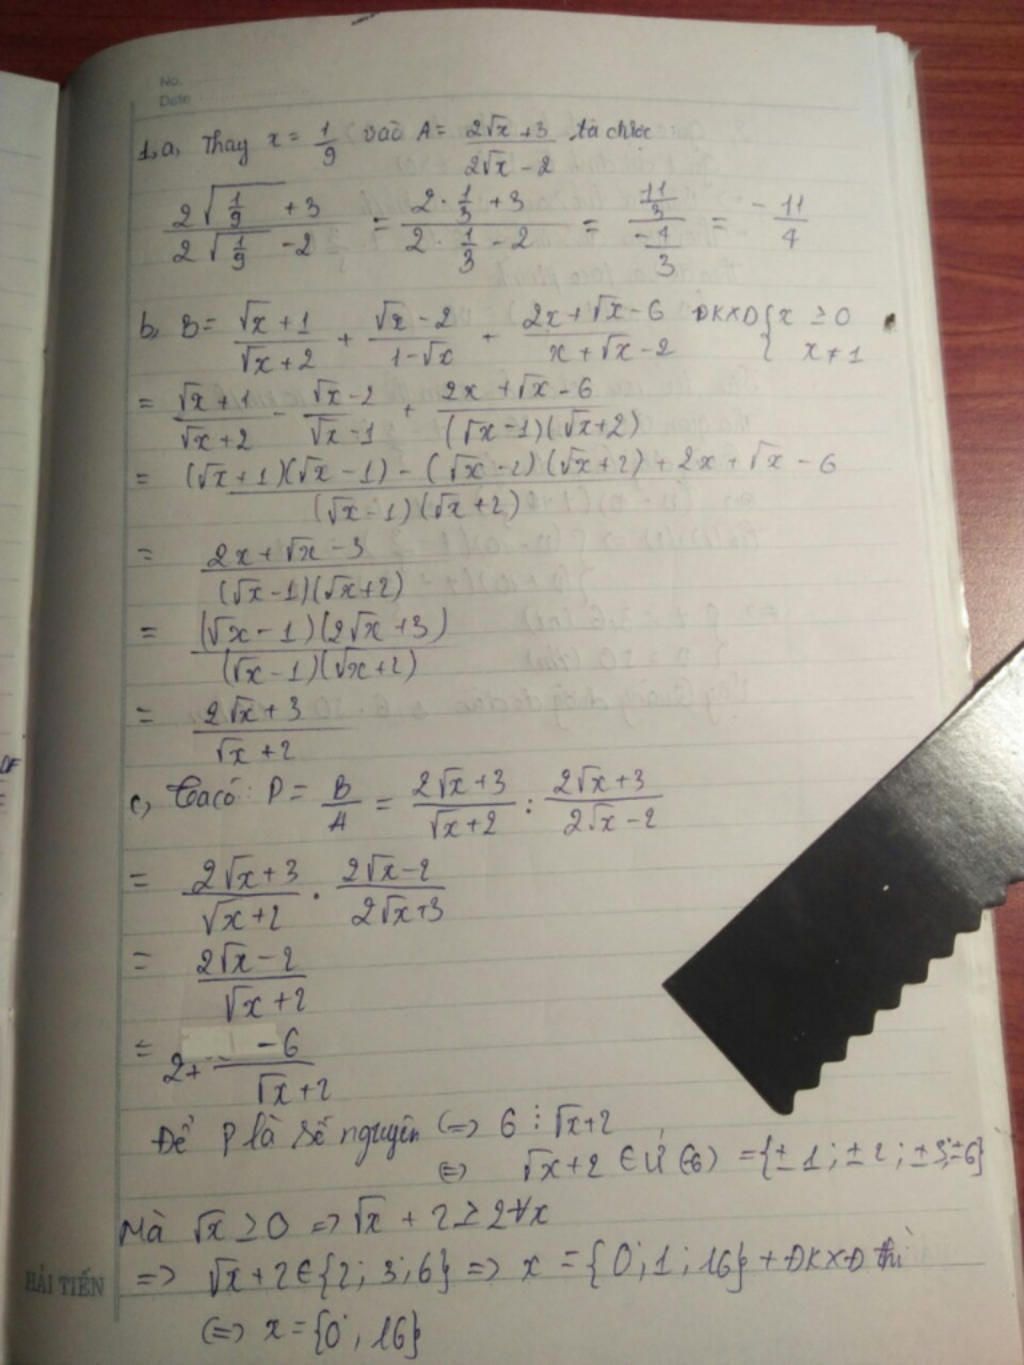 No.
Date
1, a, Thay x = 1/9 vào A = (2√x + 3)/(2√x - 2) ta được
(2√(1/9) + 3)/(2√(1/9) - 2) = (2 · 1/3 + 3)/(2 · 1/3 - 2) = (11/3)/(-4/3) = -11/4
b, B = (√x + 1)/(√x + 2) + (√x - 2)/(1 - √x) + (2x + √x - 6)/(x + √x - 2) ĐKXĐ { x ≥ 0
x ≠ 1
= (√x + 1)/(√x + 2) - (√x - 2)/(√x - 1) + (2x + √x - 6)/((√x - 1)(√x + 2))
= ((√x + 1)(√x - 1) - (√x - 2)(√x + 2) + 2x + √x - 6)/((√x - 1)(√x + 2))
= (2x + √x - 3)/((√x - 1)(√x + 2))
= ((√x - 1)(2√x + 3))/((√x - 1)(√x + 2))
= (2√x + 3)/(√x + 2)
c, Ta có: P = B/A = (2√x + 3)/(√x + 2) : (2√x + 3)/(2√x - 2)
= (2√x + 3)/(√x + 2) · (2√x - 2)/(2√x + 3)
= (2√x - 2)/(√x + 2)
= 2 + (-6)/(√x + 2)
Để P là số nguyên (=) 6 ⋮ √x + 2
(=) √x + 2 ∈ Ư (-6) = {±1; ±2; ±3; ±6}
Mà √x ≥ 0 => √x + 2 ≥ 2 ∀x
=> √x + 2 ∈ {2; 3; 6} => x = {0; 1; 16} + ĐKXĐ thì
(=) x = {0; 16}
HẢI TIẾN